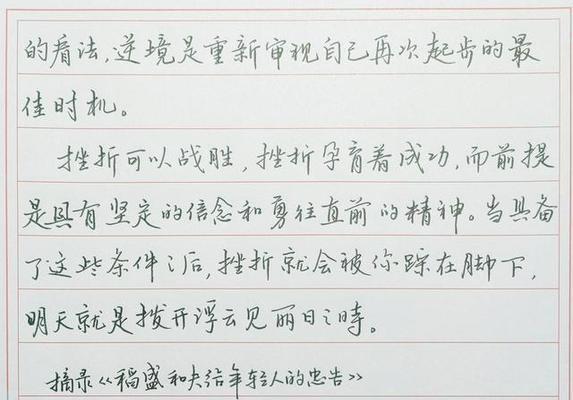 的看法,逆境是重新审视自己再次起步的最
佳时机。
挫折可以战胜,挫折孕育着成功,而前提
是具有坚定的信念和勇往直前的精神。当具备
了这些条件之后,挫折就会被你踩在脚下,
明天就是拨开浮云见丽日之時。
摘录《稻盛和夫给年轻人的忠告》